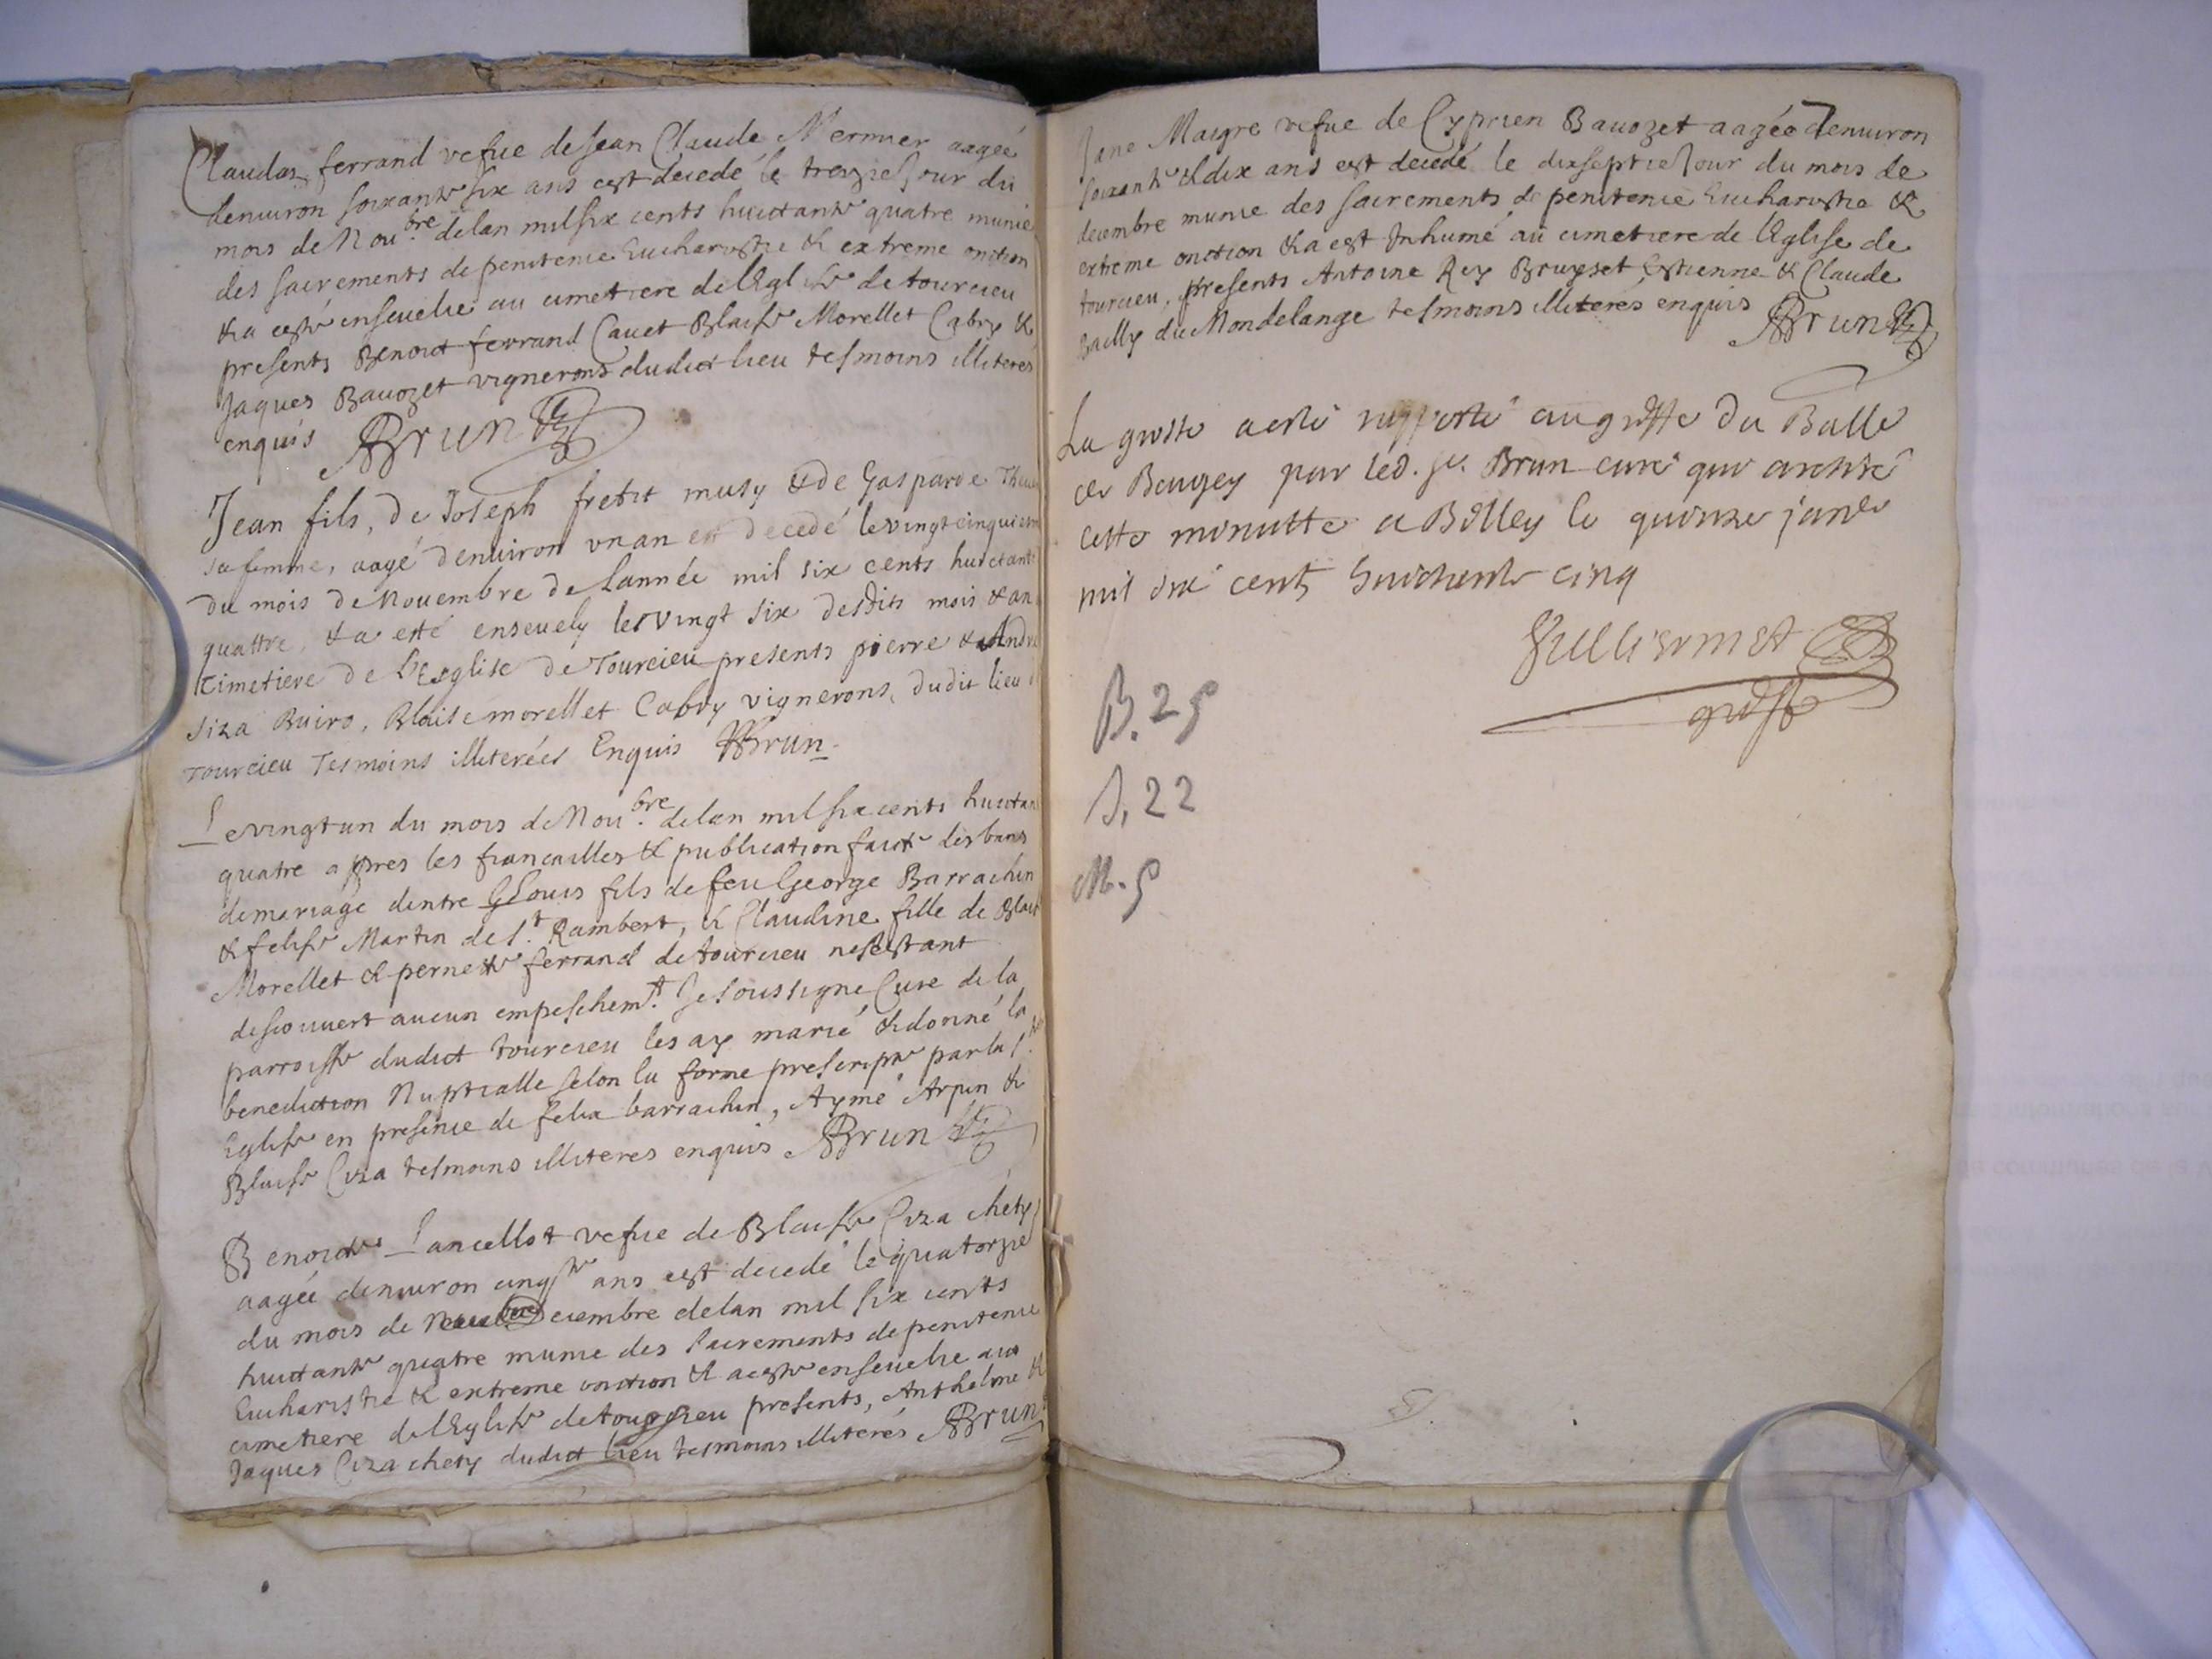 Claudaz ferrand vefue de Jean Claude Mermier aagée
denuiron soixante six ans est decedé le trezie Jour du
mois de Nou.bre de lan mil six cents huictante quatre munie
des sacrements de penitence Eucharistie & extreme onction
& a esté enseuelie au cimetiere de lEglise de tourcieu
presents Benoict ferrand Cauet Blaise Morellet Cabry &
Jaques Bauozet vignerons dudict lieu tesmoins illiteres
enquis Brun
Jean fils, de Joseph fretit musy & de Gasparde
sa femme, aagé denuiron vn an est decedé le vingt cinquiem
du mois de Nouembre de Lannée mil six cents huictant
quattre, & a esté enseuely le vingt six desdits mois & an
cimetiere de L'Esglise de Tourcieu presents pierre & Andre
Siza Buiro, Blaise morellet Cabry vignerons, dudit lieu
Tourcieu Tesmoins illiterées Enquis Brun
Le vingt un du mois de Nou.bre de lan mil six cents huictan
quatre apres les fiancailles & publication faicte des bans
de mariage dentre Louis fils de feu George Barrachin
& felise Martin de St. Rambert, & Claudine fille de Blaise
Morellet & pernette ferrand de tourcieu nestant
descouuert aucun empeschemt. Je soussigne Cure de la
parroisse dudict tourcieu les ay marié & donné la
benediction Nuptialle selon la forme prescripte par la Ste
Eglise en presence de felix barrachin, Aymé Arpin &
Blaise Ciza tesmoins illiteres enquis Brun
Benoicte Lancellot vefue de Blaise Ciza chety
aagée denuiron cinqte ans est decedé le quatorzie
du mois de decembre de lan mil six cents
huictante quatre munie des sacrements de penitence
Eucharistie & extreme onction & a este enseuelie au
cimetiere de lEglise de tourcieu presents, Anthelme &
Jaques Ciza chety dudict lieu tesmoins illiterés Brun
Jane Maigre vefue de Cyprien Bauozet aagée denuiron
soixante & dix ans est decedé le dixseptie Jour du mois de
decembre munie des sacrements de penitence Eucharistie &
extreme onction & a est Inhumé au cimetiere de lEglise de
tourcieu, presents Antoine Rey Bruyset, Estienne & Claude
Bailly du Mondelange tesmoins illiterés enquis Brun
La grosse a esté rapporté au greffe du Balle
de Beugey par led. sr. Brun curé qui a retiré
cette minutte a Belley le quinze janer
mil six cents huictante cinq
greff
B. 25
S. 22
M. 5